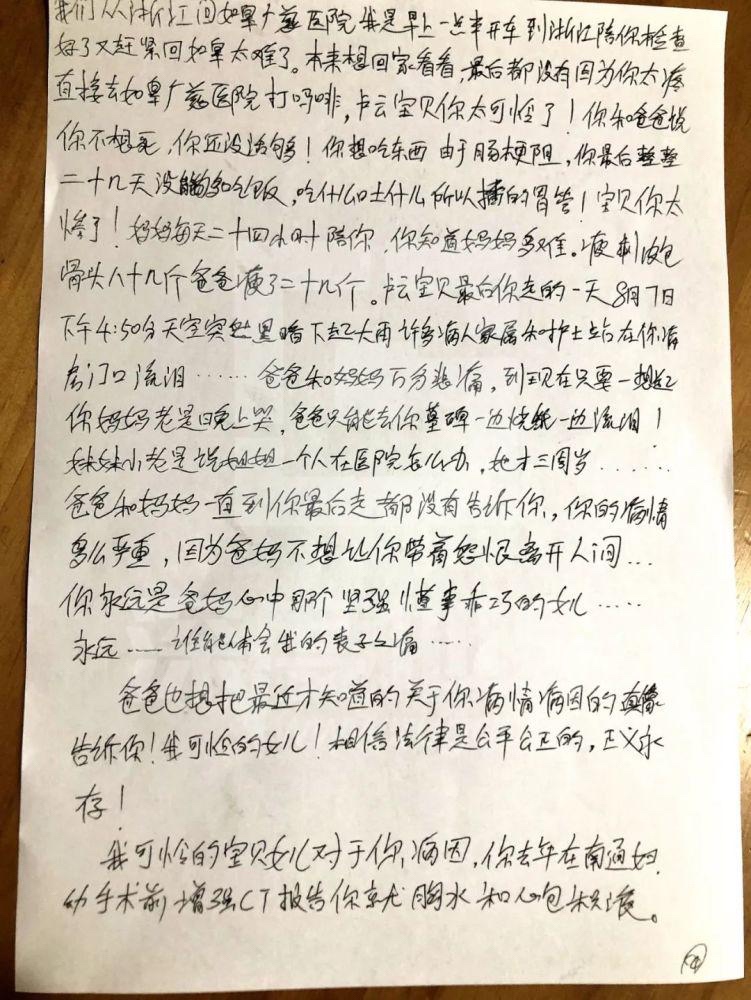 我们从浙江回如皋广慈医院我是早上一点半开车到浙江陪你检查
好了又赶紧回如皋太难了。本来想回家看看,最后都没有因为你太疼
直接去如皋广慈医院打吗啡,卢云宝贝你太可怜了!你和爸爸说
你不想死,你还没活够!你想吃东西由于肠梗阻,你最后整整
二十几天没能够吃饭,吃什么吐什么所以插的胃管!宝贝你太
惨了!妈妈每天二十四小时陪你,你知道妈妈多难。瘦刺皮包
骨头八十几斤爸爸瘦了二十几斤。卢云宝贝最后你走的一天8月7日
下午4:50分天空突然黑暗下起大雨许多病人家属和护士站在你病
房门口流泪……爸爸和妈妈万分悲痛,到现在只要一想起
你妈妈老是晚上哭,爸爸只能去你墓碑一边烧纸一边流泪!
妹妹小老是说姐姐一个人在医院怎么办,她才三周岁……
爸爸和妈妈一直到你最后走都没有告诉你,你的病情
多么严重,因为爸妈不想让你带着怨恨离开人间…
你永远是爸妈心中那个坚强懂事乖巧的女儿……
永远……谁能体会我的丧子之痛……
爸爸也想把最近才知道的关于你病情病因的真像
告诉你!我可怜的女儿!相信法律是公平公正的,正义永
存!
我可怜的宝贝女儿对于你病因,你去年在南通妇
幼手术前增强CT报告你就有胸水和心包积液。
④